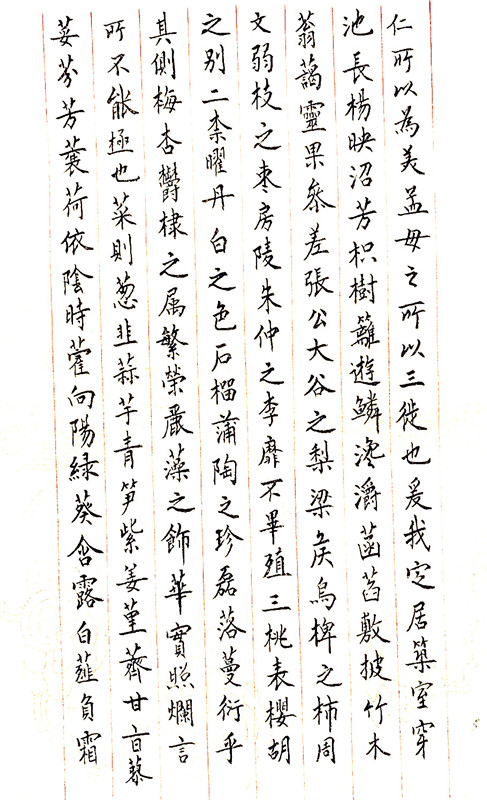 仁所以為美孟母之所以三徙也爰我定居築室穿
池長楊映沼芳枳樹籬遊鱗瀺灂菡萏敷披竹木
蓊藹靈果參差張公大谷之梨梁侯烏椑之柿周
文弱枝之棗房陵朱仲之李靡不畢殖三桃表櫻胡
之别二柰曜丹白之色石榴蒲陶之珍磊落蔓衍乎
其側梅杏欝棣之属繁榮麗藻之飾華實照爛言
所不能極也菜則葱韭蒜芋青笋紫姜堇薺甘旨蓼
荽芬芳蘘荷依陰時藿向陽緑葵含露白薤負霜